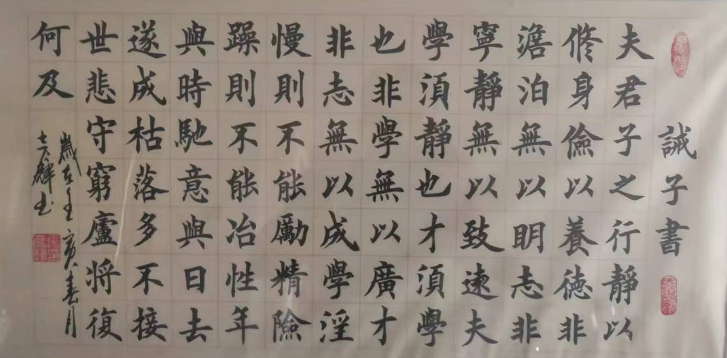 誡子書
夫君子之行靜以
修身儉以養德非
澹泊無以明志非
寧靜無以致遠夫
學須靜也才須學
也非學無以廣才
非志無以成學淫
慢則不能勵精險
躁則不能冶性年
與時馳意與日去
遂成枯落多不接
世悲守窮廬將復
何及
歲在壬寅春月
書